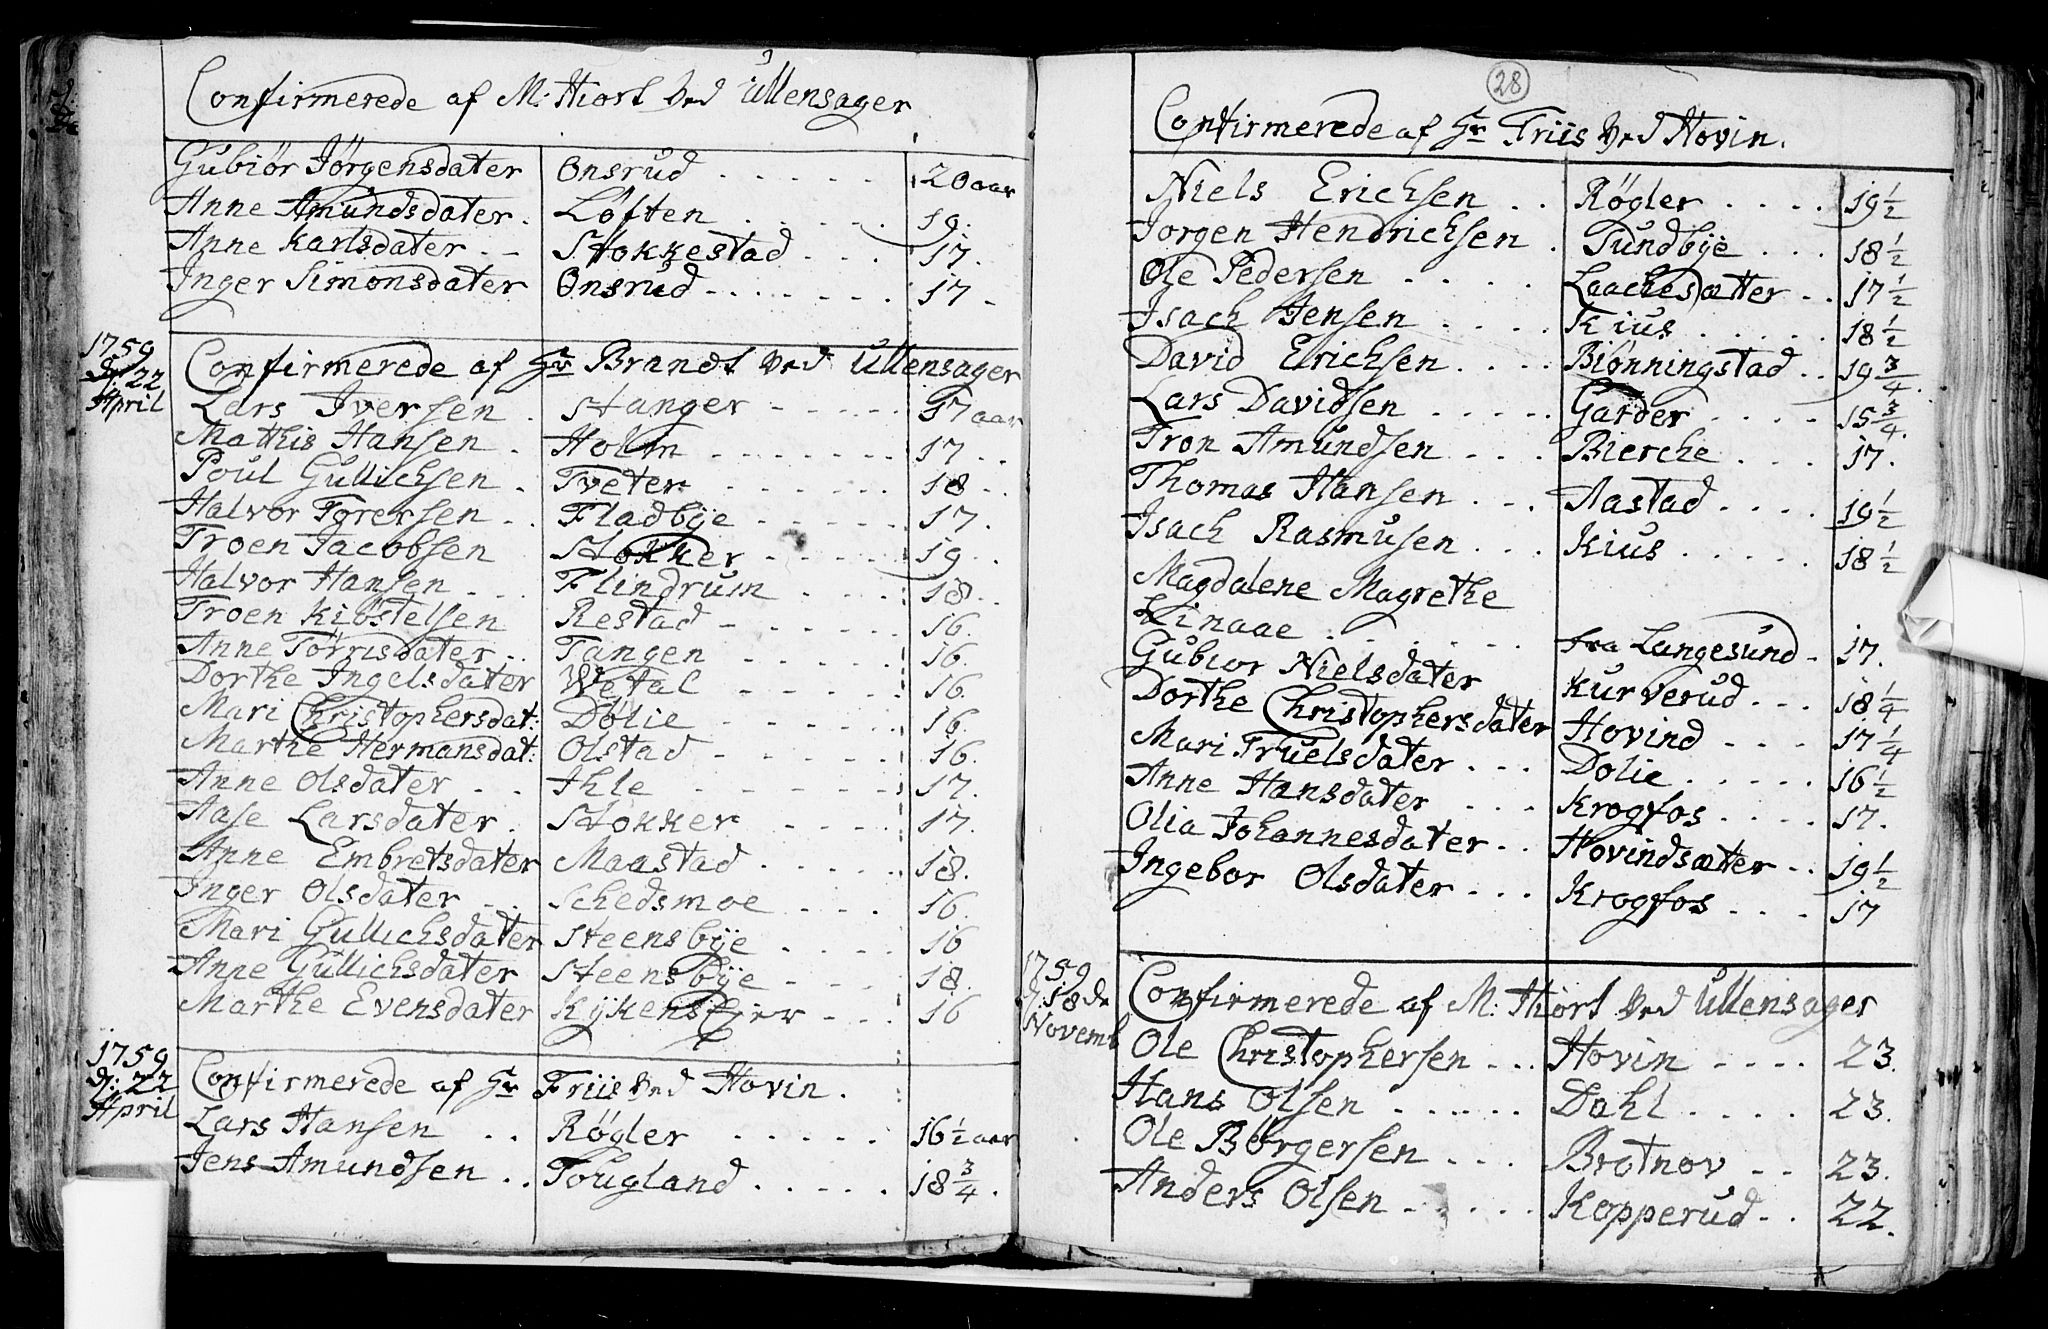 Confirmerede af M: Hiort Ved Ullensager
Gubiør Jörgensdater Onsrud . . . . . 20 aar
Anne Amundsdater . Løften . . . . . 19.
Anne Karlsdater . . Stokkestad . . . 17.
Inger Simonsdater Onsrud . . . . . . 17 .
1759
d: 22
April
Confirmerede af Hr Brandt Ved Ullensager
Lars Iversen . Stanger . . . . . 17 aar
Mathis Hansen . Holm . . . . . . 17 . .
Poul Gullichsen . Tveter . . . . . . 18 . .
Halvor Torersen . . Fladbÿe . . . . . 17 .
Troen Jacobsen Stokker . . . . . 19 . .
Halvor Hansen . . . Flindrum . . . . 18 . .
Troen Kiöstelsen Restad . . . . . . 16.
Anne Törrisdater . . Tangen . . . . . 16.
Dorthe Ingelsdater Wetal . . . . . 16.
Mari Christophersdat: Dölie . . . . . 16.
Marthe Hermansdat: Olstad . . . . . 16.
Anne Olsdater . . Ihle . . . . . . 17.
Aase Larsdater . Stokker . . . . 17.
Anne Embretsdater Maastad . . . . . 18.
Inger Olsdater . . Schedsmoe . . . 16.
Mari Gullichsdater Steensbÿe . . . . 16
Anne Gullichsdater Steensbÿe . . . . 18.
Marthe Evensdater . . . 16
1759
d: 22
April
Confirmerede af Hr Friis Ved Hovin .
Lars Hansen . . Røgler . . . . . 16 ½ aar
Jens Amundsen . . Tougland . . . . . 18 ¾ .
28
Confirmerede af Hr Friis Ved Hovin.
Niels Erichsen . . Røgler . . . . 19 ½
Jorgen Hendrichsen . Sundbÿe . . . 18 ½
Ole Pedersen . . . . Laachesætter . . 17 ½
Isach Jensen . . . . Kius . . . . . 18 ½
David Erichsen . . . . Biønningstad . . 19 ¾ .
Lars Davidsen . . . . . Garder . . . . 15 ¾ .
Tron Amundsen . . . Bierche . . . 17.
Thomas Hansen . . . Aastad . . . . 19 ½
Isach Rasmusen . . . Kius . . . . . 18 ½
Magdalene Magrethe
Linaae . . . . . . fra Langesund . 17.
Gubior Nielsdater Kurverud . . . 18 ¼
Dorthe Christophersdater Hovind . . . . 17 ¼
Mari Truelsdater . . . Dolie . . . . . 16 ½
Anne Hansdater . . . Krogfos . . . . 17.
Olia Johannesdater . . Hovindsæter . . 19 ½
Ingebor Olsdater . . . Krogfos . . . . 17
1759
d: 18 de
Novemb
Confirmerede af M: Hiort Ved Ullensager
Ole Christophersen . . . Hovin . . . . 23.
Hans Olsen . . . . . . Dahl . . . . 23.
Ole Børgersen . . . Brotnov . . 23.
Anders Olsen . . . . . Kopperud . . 22.